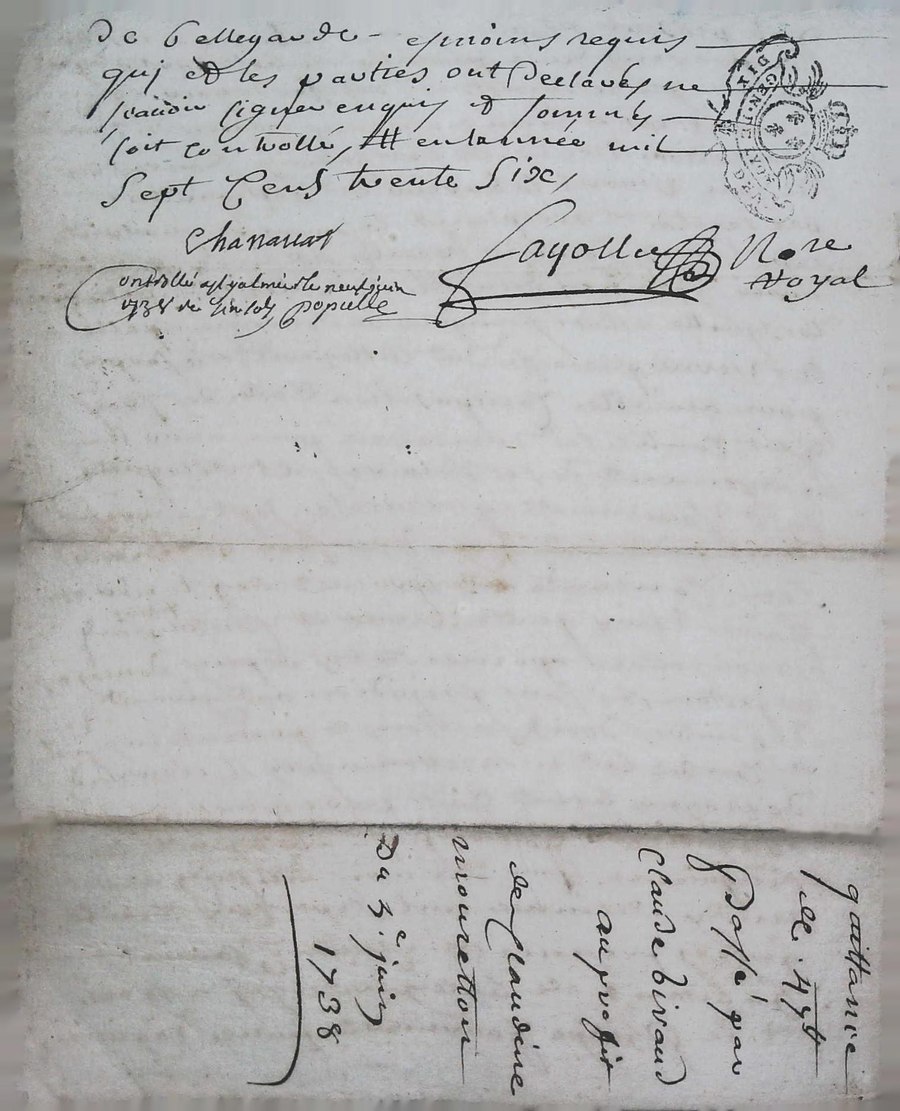 de bellegarde - temoins requis
quj et les parties ont declarés ne
scavoir signer enquis et sommés
soit controllé, ### en lannée mil
Sept Cens trente Six,
DIX
GEN
Chanavat
Fayolle
Nore
Royal
controllé a st galmier le neuf juin
1738 Populle
quittance
de 47#
passé par
Claude Giraud
au proffit
de Claudine
mouretton
Du 3.e juin
1738